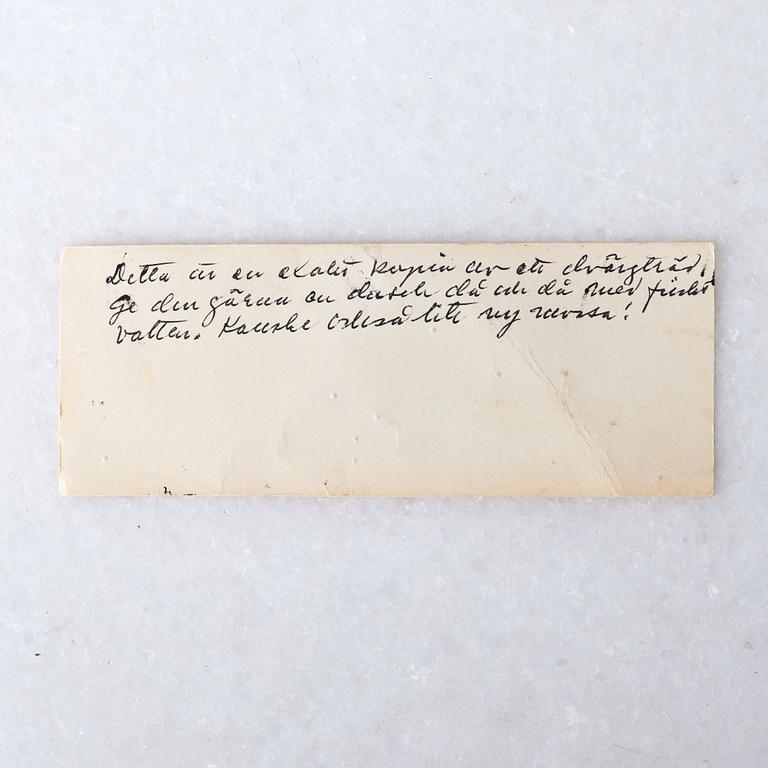 Detta är en exakt kopia av ett dvärgträd.
Ge den gärna en dusch då och då med friskt
vatten. Kanske också lite ny mossa!